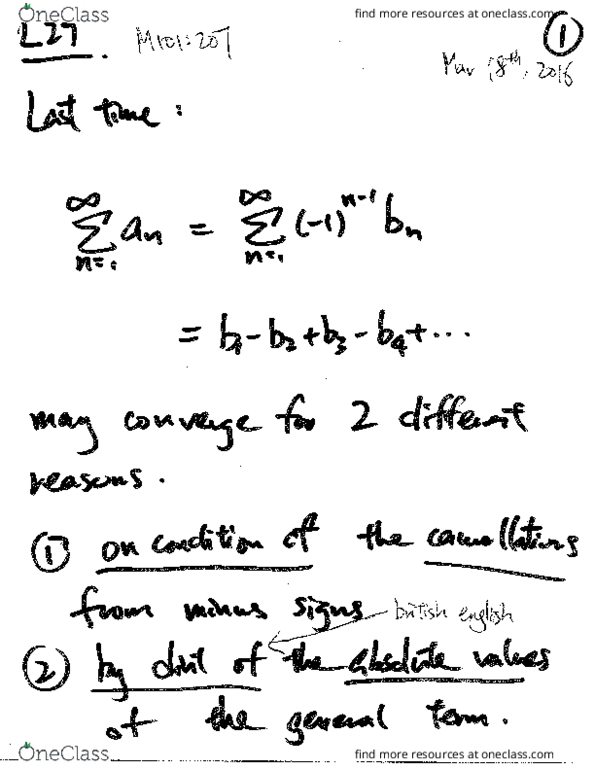 OneClass
find more resources at oneclass.com
L27. M101:207
1
Mar 18th, 2016
Last time:
∞ ∞
∑ aₙ = ∑ (-1)ⁿ⁻¹ bₙ
n=1 n=1
= b₁ - b₂ + b₃ - b₄ + ...
may converge for 2 different
reasons.
① on condition of the cancellations
from minus signs
british english
② by dint of the absolute values
of the general term.
OneClass
find more resources at oneclass.com